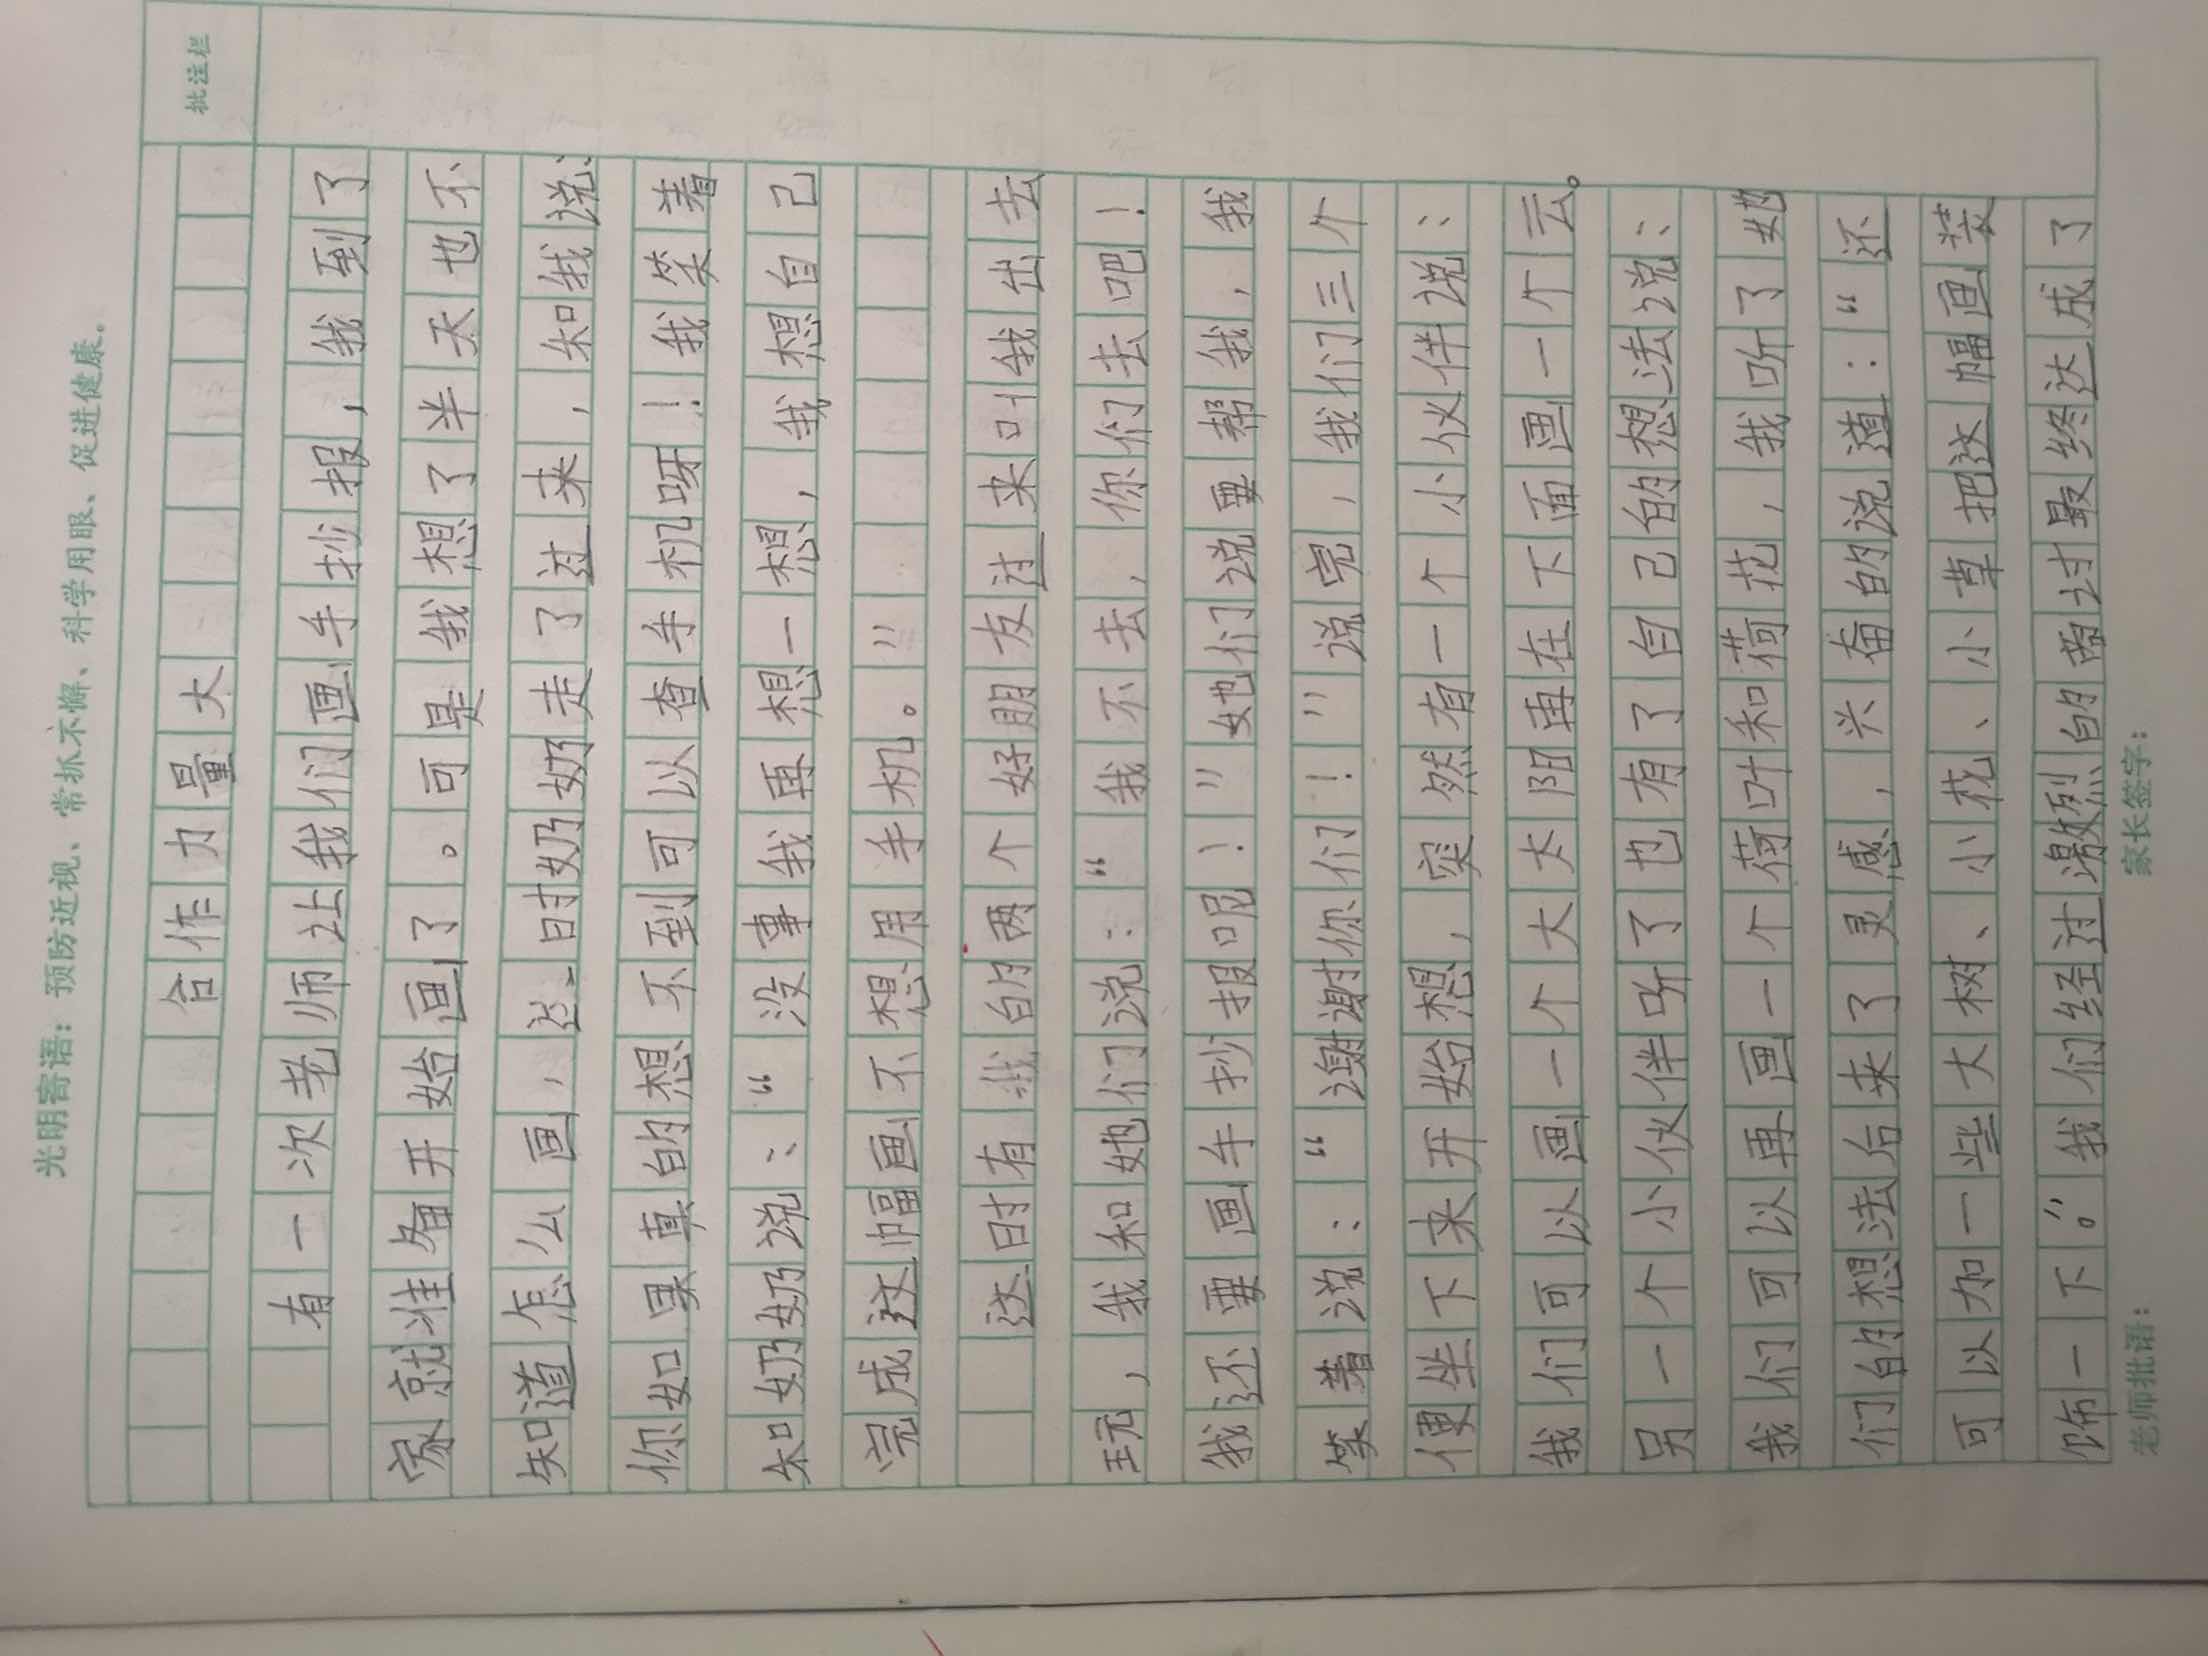 光明寄语：预防近视、常抓不懈、科学用眼、促进健康。
批注栏
合作力量大
有一次老师让我们画手抄报，我到了
家就准备开始画了。可是我想了半天也不
知道怎么画，这时奶奶走了过来，和我说：
你如果真的想不到可以查手机呀！我笑着
和奶奶说：“没事我再想一想，我想自己
完成这幅画不想用手机。”
这时有我的两个好朋友过来叫我出去
玩，我和她们说：“我不去，你们去吧！
我还要画手抄报呢！”她们说要帮我，我
笑着说：“谢谢你们！”说完，我们三个
便坐下来开始想，突然有一个小伙伴说：
我们可以画一个大太阳再在下面画一个云。
另一个小伙伴听了也有了自己的想法说：
我们可以再画一个荷叶和荷花，我听了她
们的想法后来了灵感，兴奋的说道：“还
可以加一些大树、小花、小草把这幅画装
饰一下。”我们经过激烈的商讨最终达成了
老师批语：
家长签字：